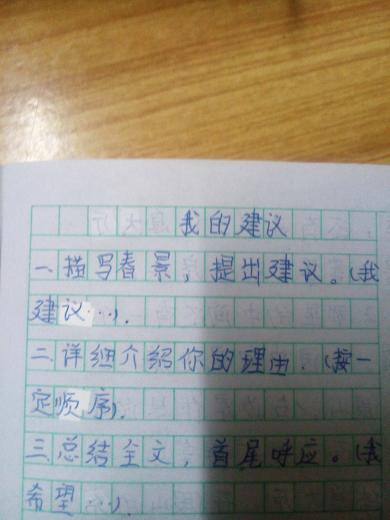 我的建议
一.描写春景，提出建议。(我
建议…).
二.详细介绍你的理由.(按一
定顺序).
三.总结全文，首尾呼应。(我
希望…).